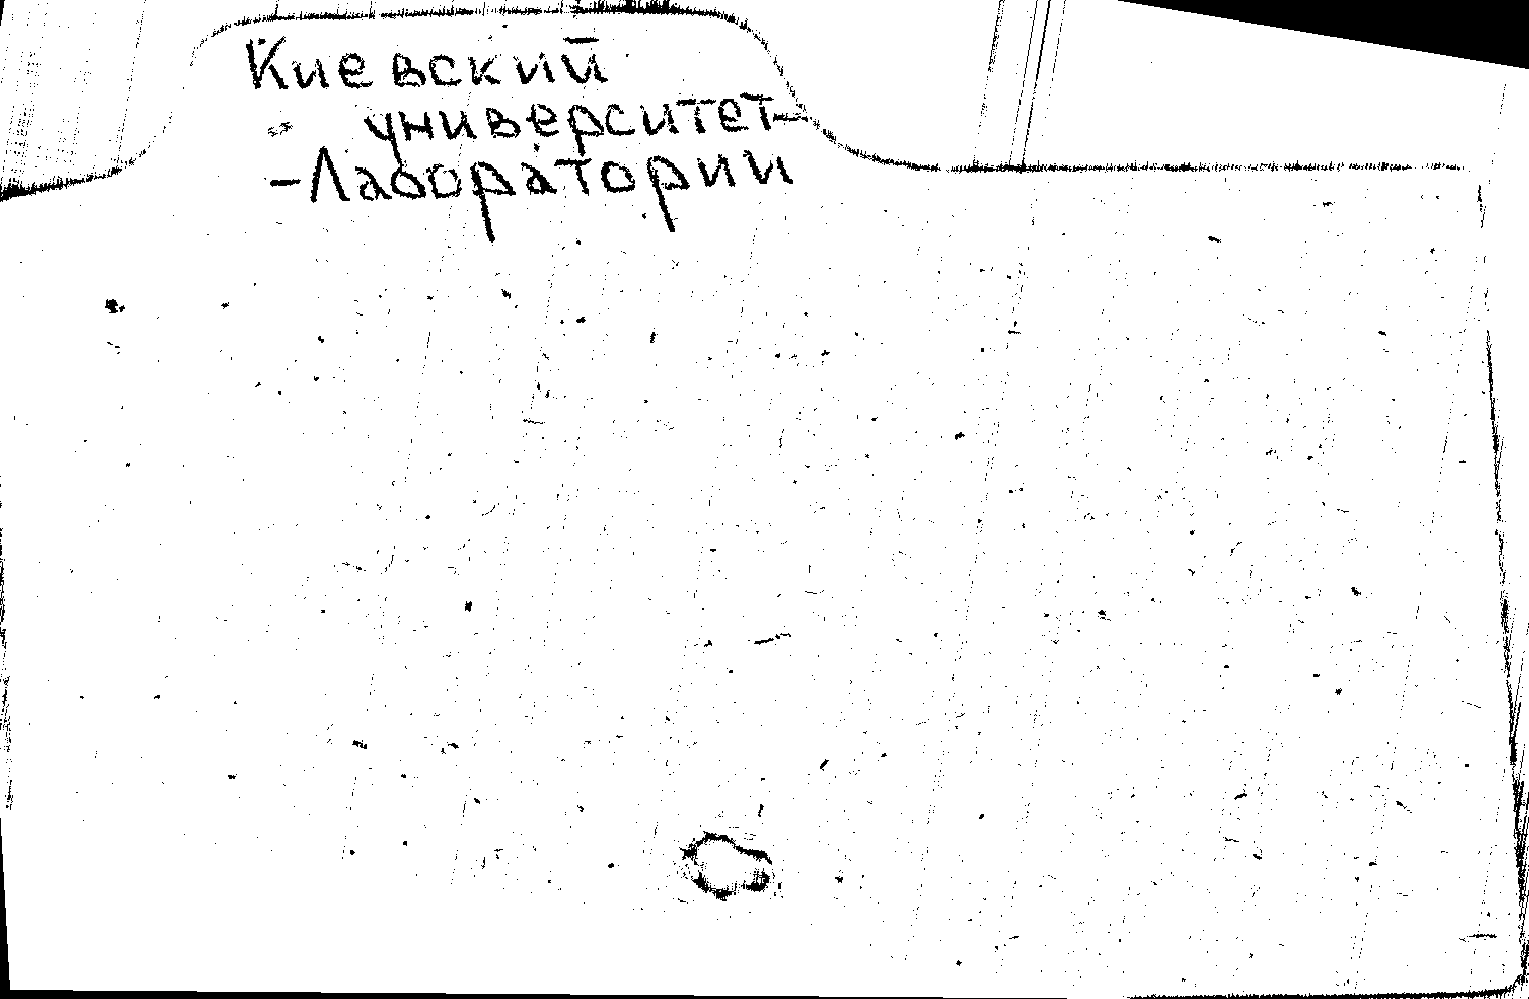 Киевский
университет-
-Лаборатории